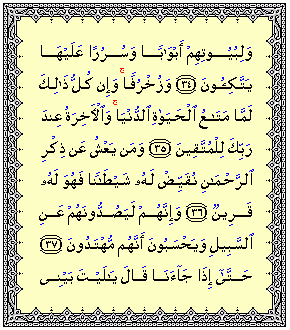 وَلِبُيُوتِهِمْ أَبْوَٰبًا وَسُرُرًا عَلَيْهَا
يَتَّكِـُٔونَ ﴿٣٤﴾ وَزُخْرُفًا ۚ وَإِن كُلُّ ذَٰلِكَ
لَمَّا مَتَـٰعُ ٱلْحَيَوٰةِ ٱلدُّنْيَا ۚ وَٱلْـَٔاخِرَةُ عِندَ
رَبِّكَ لِلْمُتَّقِينَ ﴿٣٥﴾ وَمَن يَعْشُ عَن ذِكْرِ
ٱلرَّحْمَـٰنِ نُقَيِّضْ لَهُۥ شَيْطَـٰنًا فَهُوَ لَهُۥ
قَرِينٌ ﴿٣٦﴾ وَإِنَّهُمْ لَيَصُدُّونَهُمْ عَنِ
ٱلسَّبِيلِ وَيَحْسَبُونَ أَنَّهُم مُّهْتَدُونَ ﴿٣٧﴾
حَتَّىٰٓ إِذَا جَآءَنَا قَالَ يَـٰلَيْتَ بَيْنِى